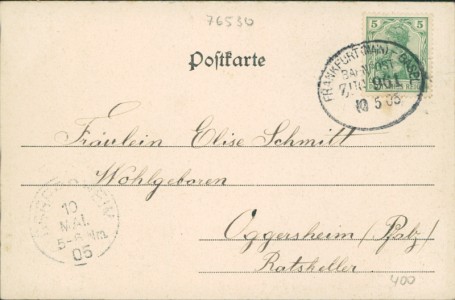 76530
5 5
Postkarte
FRANKFURT (MAIN) - BASEL
BAHNPOST
ZUG 961
10 5 05
Fräulein Elise Schmitt
Wohlgeboren
10
MAI.
5-6Nm.
05
Oggersheim (Pfalz)
Ratskeller.
400